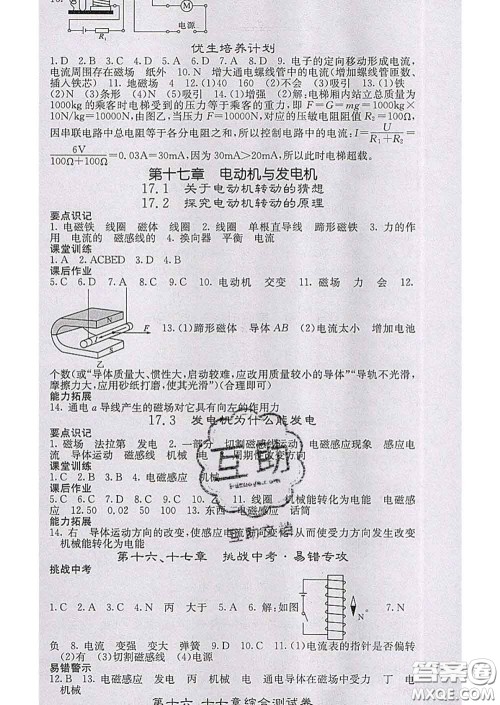 电源
R₁
优生培养计划
1. D 2. B 3. C 4. A 5. B 6. A 7. D 8. D 9. 电子的定向移动形成电流,
电流周围存在磁场 纸外 10. N 增大通电螺线管中的电流(增加螺线管匝数、
插入铁芯) 11. 地磁场 4 12. (1)40 160 (2)不会 (3)吸引 13. (1)铁
(2)N (3)条形 (4)N (5)吸引 14. (1)增强 (2)解:电梯厢内站立总质量为
1000kg的乘客时电梯受到的压力等于乘客的重力,即F=G=mg=1000kg×
10N/kg=10000N,由图乙,当压力F=10000N,对应的压敏电阻阻值R₂=100Ω,
因串联电路中总电阻等于各分电阻之和,所以控制电路中的电流:I=U/(R₁+R₂)=
6V/(100Ω+100Ω)=0.03A=30mA,因为30mA>20mA,所以此时电梯超载。
第十七章 电动机与发电机
17.1 关于电动机转动的猜想
17.2 探究电动机转动的原理
要点识记
1. 电磁铁 线圈 磁体 线圈 2. 线圈 单根直导线 蹄形磁体 3. 力的
作用 电流的 磁感线的 4. 换向器 平衡 电流
课堂训练
1. A 2. ACBED 3. D 4. B
课后作业
5. C 6. D 7. A 8. C 9. C 10. 电动机 交变 11. 磁场 力 会 12.
13. (1)蹄形磁体 导体AB (2)电流太小 增加电池
乙
个数(或“导体质量大、惯性大,启动较难,应改用质量较小的导体”“导轨不光滑,
摩擦力大,应用砂纸打磨,使其光滑”)(合理即可)
能力拓展
14. 通电a导线产生的磁场对它具有向左的作用力
17.3 发电机为什么能发电
要点识记
1. 磁场 法拉第 发电 2. 一部分 切割磁感线运动 电磁感应现象 感应电
流 导体运动 磁感线 机械 电 周期性改变方向
课堂训练
1. C 2. A 3. B 4. 电磁感应 机械
课后作业
5. C 6. C 7. D 8. A 9. C 10. 乙 11. 线圈 机械能转化为电能 电磁感
应 12. 50 0.02 50 100 13. 东西 电磁感应 大
能力拓展
14. 右 导体运动方向的改变,使感应电流方向改变,从而使受力方向发生改变
机械能转化为电能
第十六、十七章 挑战中考·易错专攻
挑战中考
1. C 2. A 3. C 4. N 丙 大于 5. A 6. 解:如图 7. N
负 8. 电流 变强 变大 弹簧 9. D 10. C 11. (1)电流表的指针是否偏转
(2)有 (3)切割磁感线 (4)电源
易错警示
12. B 13. 电磁感应 发电 丙 机械 电 通电导体在磁场中受力 丁 电
机械
第十六、十七章综合测试卷
互助
互助文档
答案圈
MXQE.COM